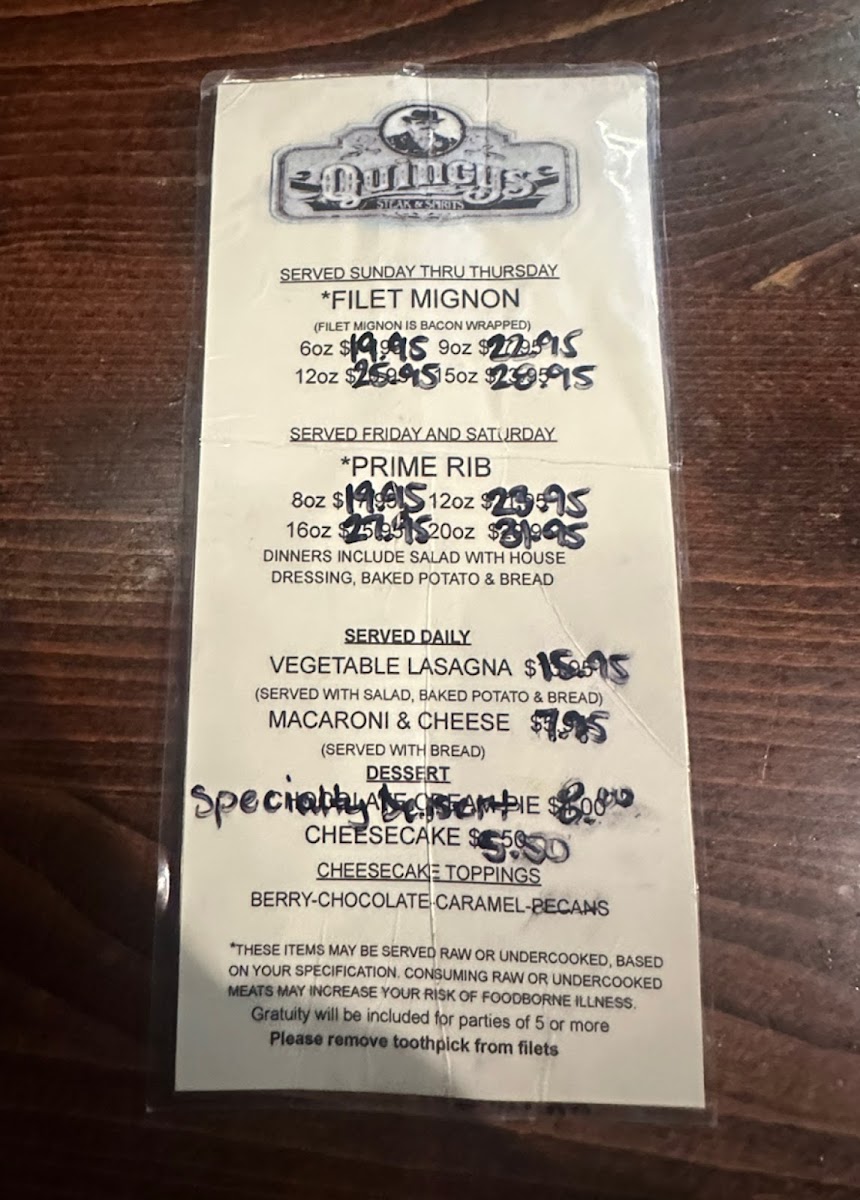 Quincys
STEAK & SPIRITS
SERVED SUNDAY THRU THURSDAY
*FILET MIGNON
(FILET MIGNON IS BACON WRAPPED)
6oz $19.95 9oz $22.95
12oz $25.95 15oz $28.95
SERVED FRIDAY AND SATURDAY
*PRIME RIB
8oz $19.95 12oz $23.95
16oz $27.95 20oz $31.95
DINNERS INCLUDE SALAD WITH HOUSE
DRESSING, BAKED POTATO & BREAD
SERVED DAILY
VEGETABLE LASAGNA $15.95
(SERVED WITH SALAD, BAKED POTATO & BREAD)
MACARONI & CHEESE $7.95
(SERVED WITH BREAD)
DESSERT
Specialty Dessert PIE $8.00
CHEESECAKE $5.50
CHEESECAKE TOPPINGS
BERRY-CHOCOLATE-CARAMEL-PECANS
*THESE ITEMS MAY BE SERVED RAW OR UNDERCOOKED, BASED
ON YOUR SPECIFICATION. CONSUMING RAW OR UNDERCOOKED
MEATS MAY INCREASE YOUR RISK OF FOODBORNE ILLNESS.
Gratuity will be included for parties of 5 or more
Please remove toothpick from filets